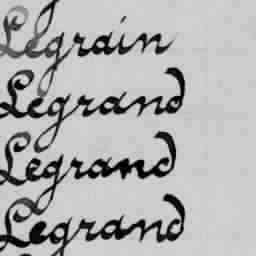 Legrain
Legrand
Legrand
Legrand